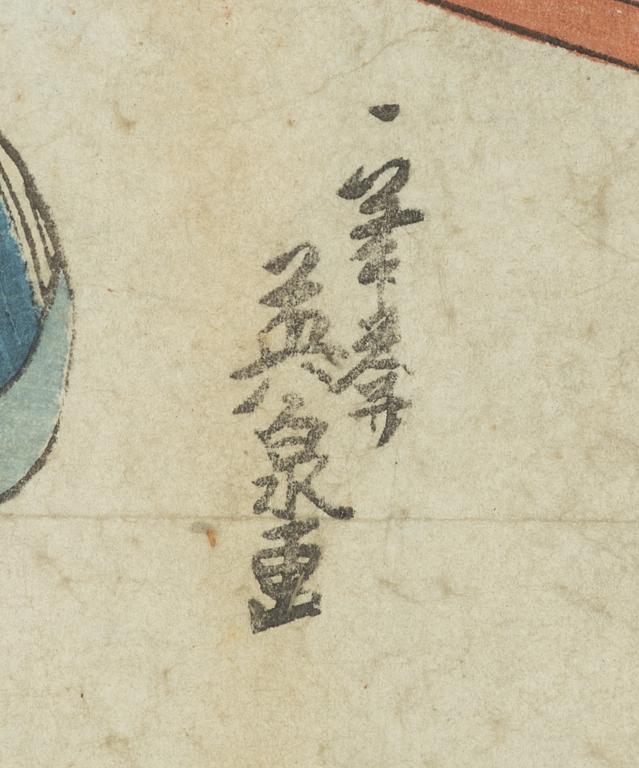 一筆葊
英泉画